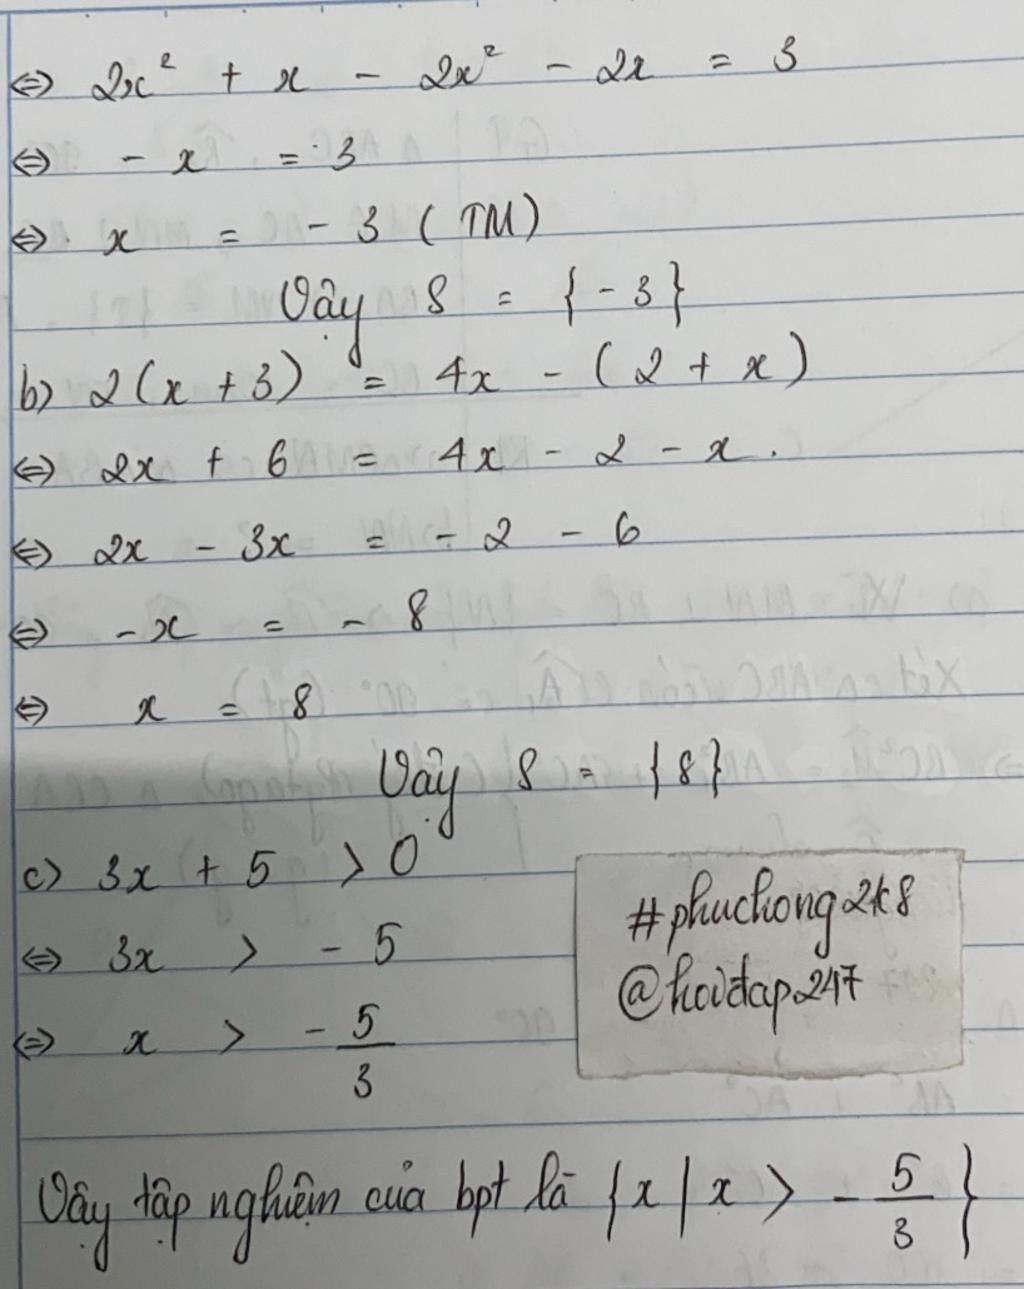 ⇔ 2x² + x - 2x² - 2x = 3
⇔ - x = 3
⇔ x = - 3 ( TM )
Vậy S = { - 3 }
b) 2 ( x + 3 ) = 4x - ( 2 + x )
⇔ 2x + 6 = 4x - 2 - x .
⇔ 2x - 3x = - 2 - 6
⇔ -x = - 8
⇔ x = 8
Vậy S = { 8 }
c) 3x + 5 > 0
⇔ 3x > - 5
⇔ x > - 5/3
#phuchong2k8
@hoidap247
Vậy tập nghiệm của bpt là { x / x > - 5/3 }